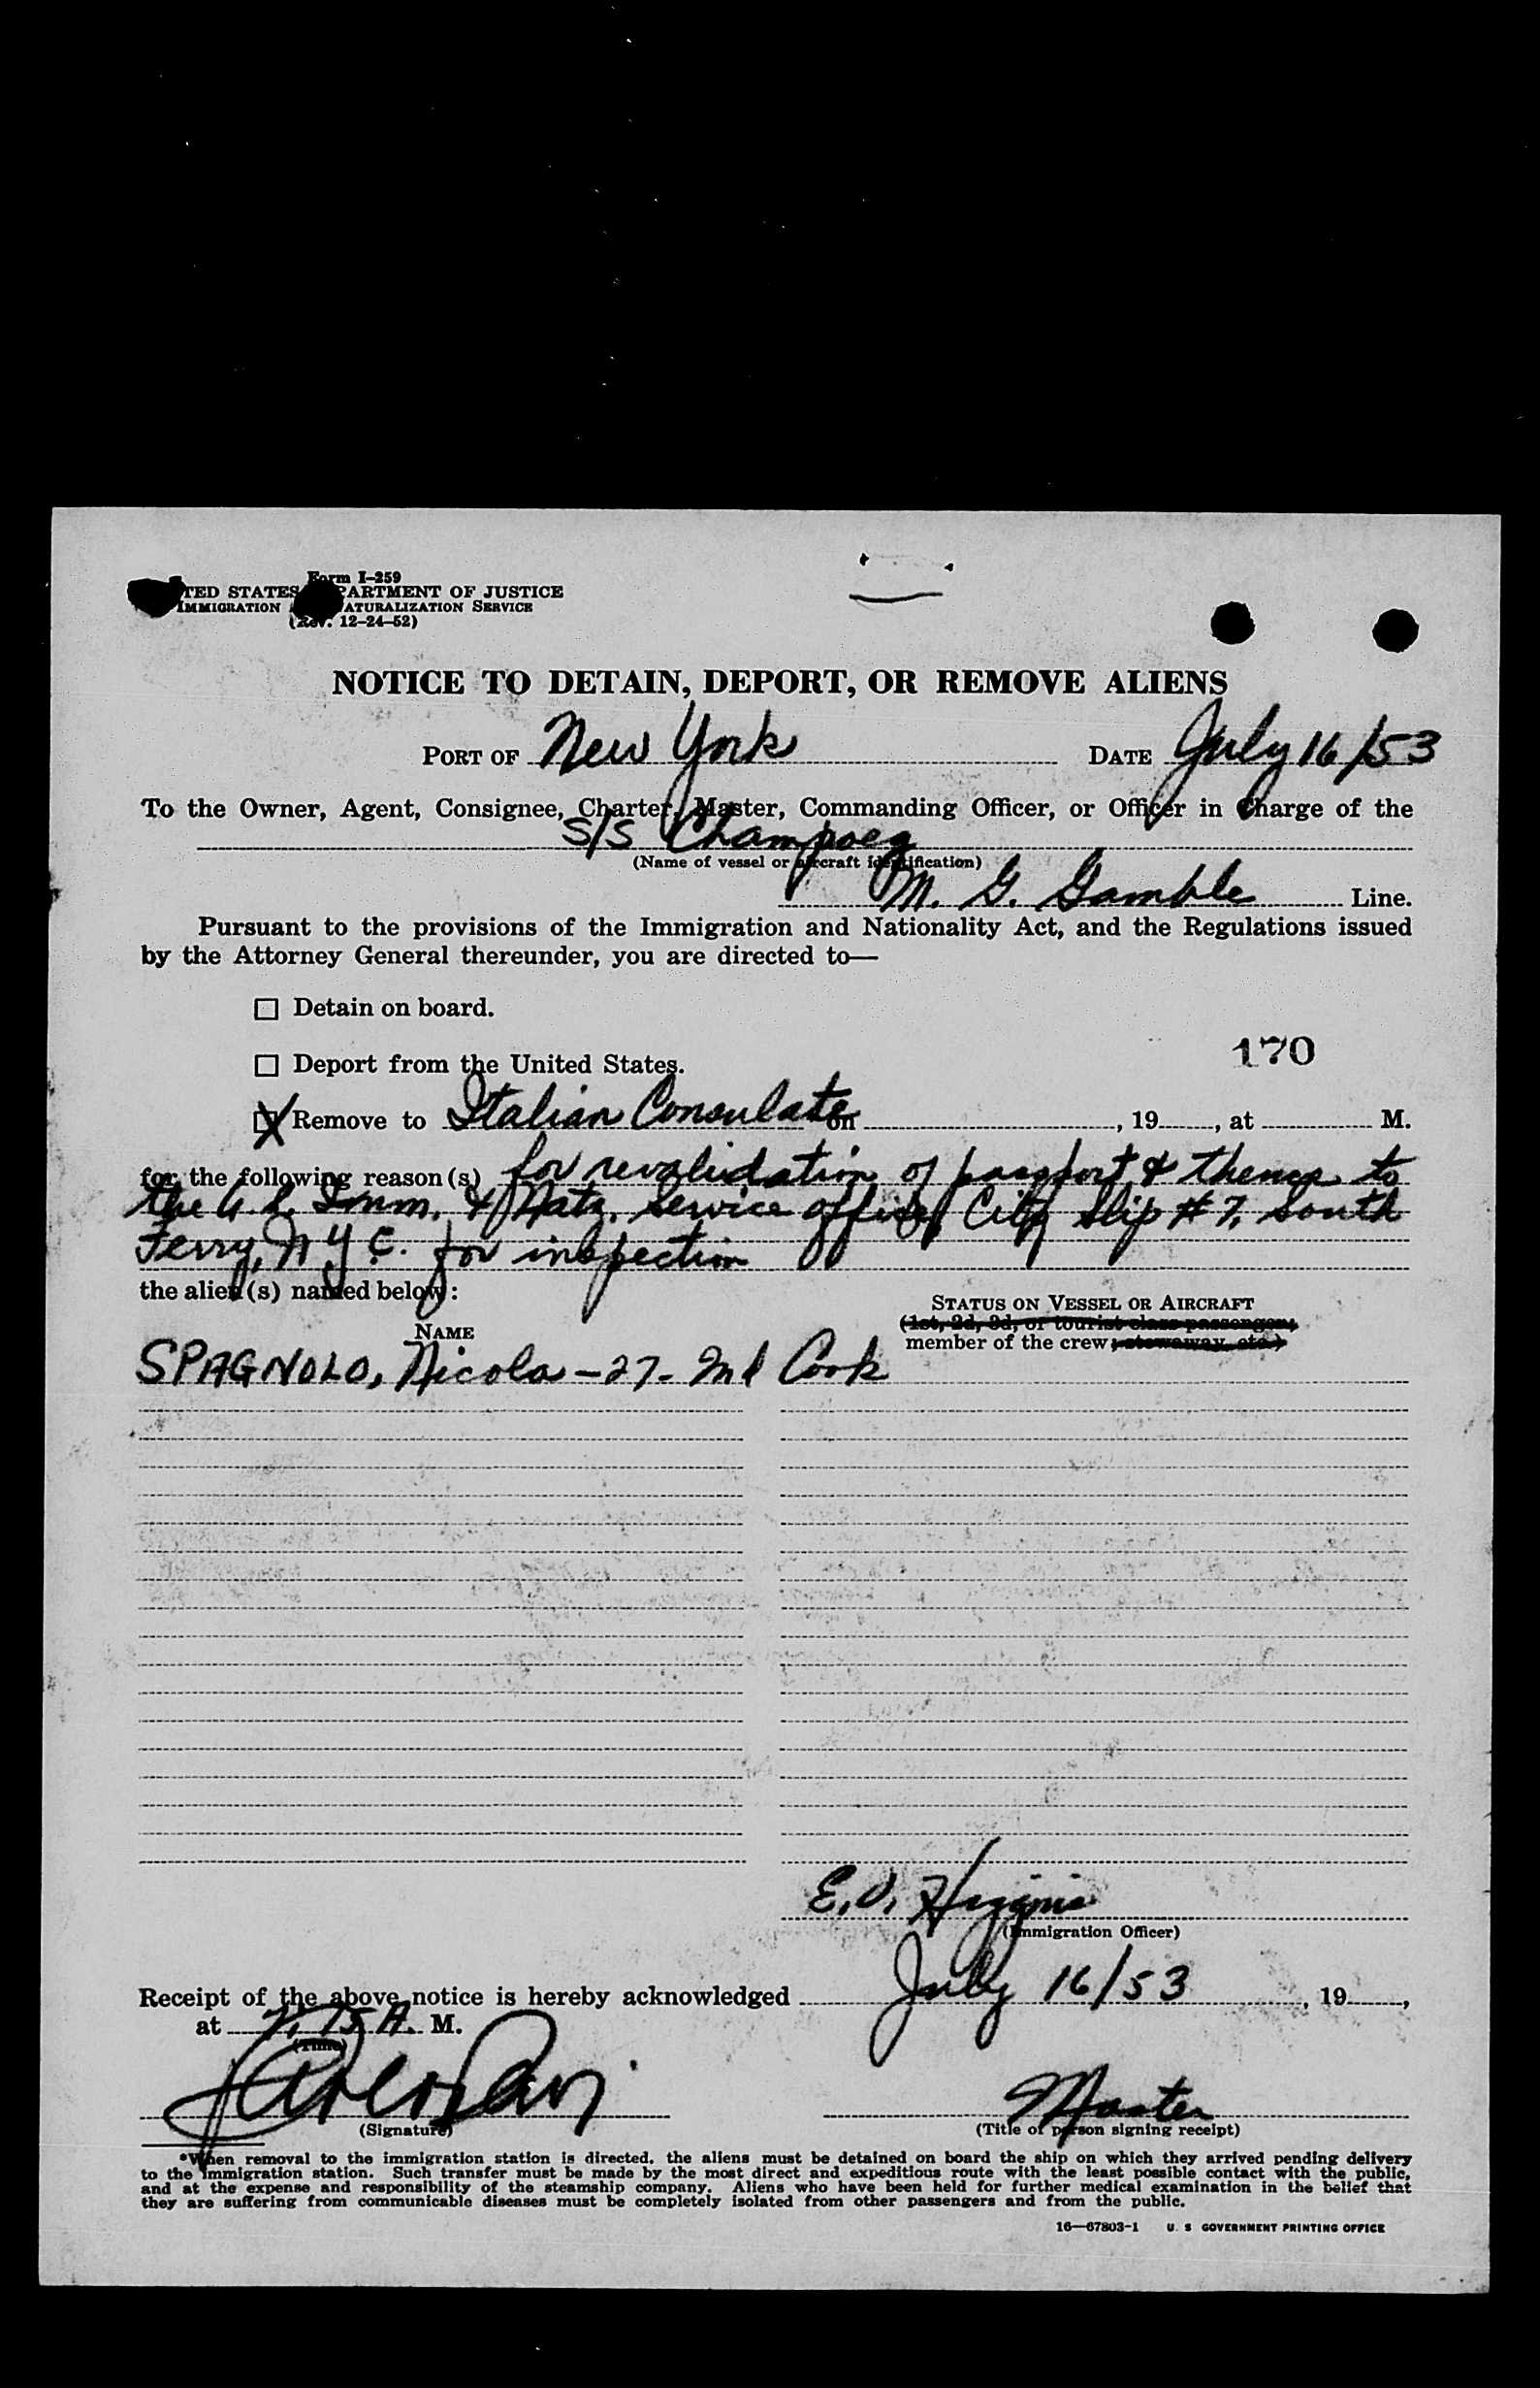 Form I-259
TED STATES PARTMENT OF JUSTICE
IMMIGRATION ATURALIZATION SERVICE
(Rev. 12-24-52)
NOTICE TO DETAIN, DEPORT, OR REMOVE ALIENS
PORT OF New York DATE July 16/53
To the Owner, Agent, Consignee, Charter, Master, Commanding Officer, or Officer in Charge of the
S/S Champoeg
(Name of vessel or aircraft identification)
M. G. Gamble Line.
Pursuant to the provisions of the Immigration and Nationality Act, and the Regulations issued
by the Attorney General thereunder, you are directed to—
Detain on board.
170
Deport from the United States.
X Remove to Italian Consulate on , 19 , at M.
for the following reason(s) for revalidation of passport & thence to
the U.S. Imm. & Natz. Service office City Slip # 7, South
Ferry, N Y C. for inspection
the alien(s) named below:
STATUS ON VESSEL OR AIRCRAFT
(1st, 2d, 3d, or tourist class passenger;
NAME
member of the crew; stowaway, etc.)
SPAGNOLO, Nicola - 27 - 2nd Cook
E. J. Higgins
(Immigration Officer)
Receipt of the above notice is hereby acknowledged July 16/53 , 19 ,
at A. M.
(Time)
Master
(Signature) (Title of person signing receipt)
*When removal to the immigration station is directed, the aliens must be detained on board the ship on which they arrived pending delivery
to the immigration station. Such transfer must be made by the most direct and expeditious route with the least possible contact with the public,
and at the expense and responsibility of the steamship company. Aliens who have been held for further medical examination in the belief that
they are suffering from communicable diseases must be completely isolated from other passengers and from the public.
16—67803-1 U. S GOVERNMENT PRINTING OFFICE